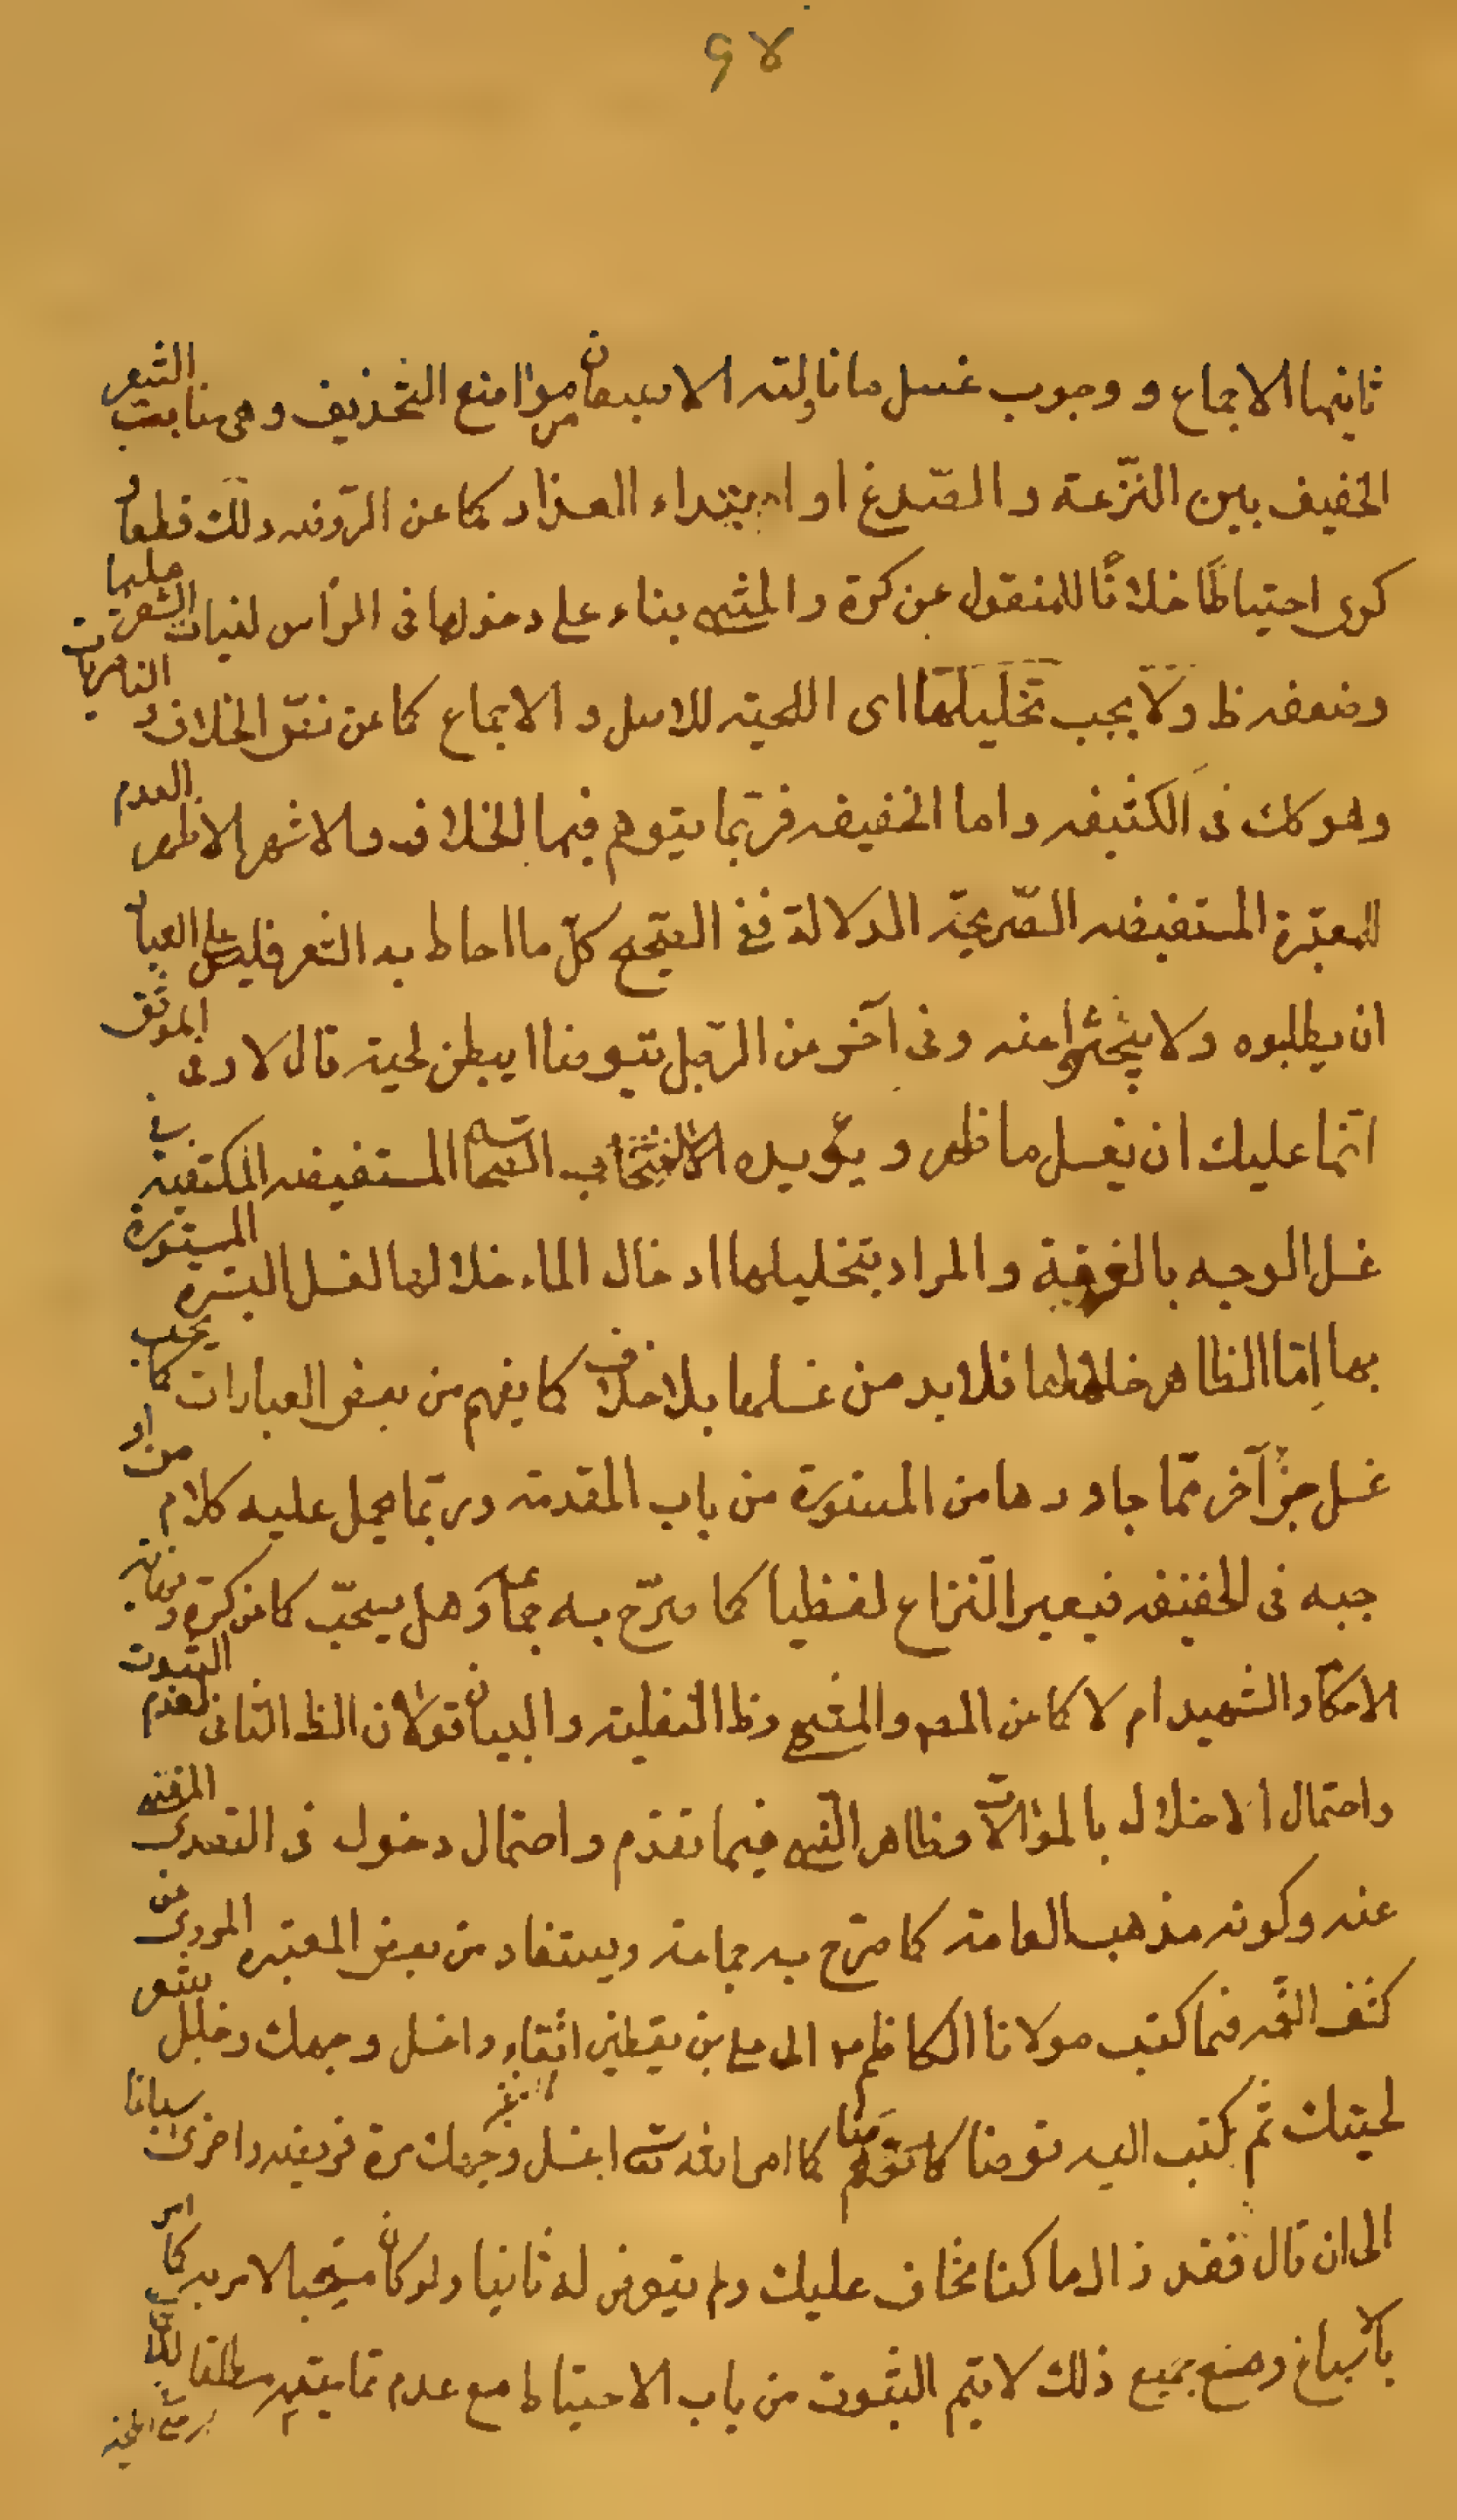 ٤٨
ثانيها الاجماع و وجوب غسل ما نالته الاصبعان من مواضع التحذيف وهى منابت الشعر
الخفيف بين النزعة والصدغ او ابتداء العذار كما عن الروضه ولك قطعا و
كرى احتياطا خلافا للمنقول عن كرة والمنتهى بناء على دخولها فى الرأس لنبات الشعر عليها
وضعفه ظ ولا يجب تخليلها اى اللحية للاصل والاجماع كما عن الخلاف و الناصريات
وهو كك فى الكثيفه واما الخفيفه فربما يتوهم فيها الخلاف والاشهر الاظهر العدم
للمعتبرة المستفيضه الصريحة الدلالة ففى الصحيح كل ما احاط به الشعر فليس على العباد
ان يطلبوه ولا يبحثوا عنه وفى آخر عن الرجل يتوضا ايبطن لحيته قال لا وفى الموثق
انما عليك ان تغسل ما ظهر و يؤيده المستفيضه المكتفية فى
غسل الوجه بالغرفة والمراد بتخليلها ادخال الماء خلالها لغسل البشره المستورة
بها اما الظاهر خلالها فلا بد من غسلها بلا خلاف كما يفهم من بعض العبارات كما يجب
غسل جزء آخر مما جاورها من المستورة من باب المقدمة وربما يحمل عليه كلام من او
جبه فى الخفيفه فيصير النزاع لفظيا كما صرح به جماعة وهل يستحب كما عن كرة و
الاحكام والشهيد ام لا كما عن المصر و وظ النفلية والبيان قولان الظ الثانى لعدم الثبوت
واحتمال الاخلال بالموالات وظاهر النهى فيما تقدم واحتمال دخول فى التعدى المنهى
عنه وكونه مذهب العامة كما صرح به جماعة ويستفاد من بعض المعتبره المروى عن
كشف الغمه فيما كتب مولانا الكاظم ع الى على بن يقطين اتقاء واغسل وجهك وخلل شعر
لحيتك ثم كتب اليه توضا كما امر الله تعالى اغسل وجهك مرة فريضه واخرى اسباغا
الى ان قال فقد زال ما كنا نخاف عليك ولم يتعرض له ثانيا ولو كان مستحبا لامر به كما امر
بالاسباغ ومنع جميع ذلك لا يتم الثبوت من باب الاحتياط مع عدم تماميته مطلقا